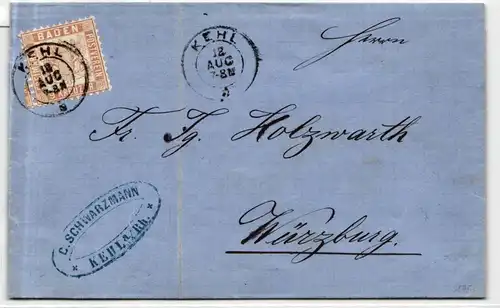 BADEN
KEHL
12
AUG
7-8N
KEHL
12
AUG
7-8N
Herrn
Fr. Jg. Holzwarth
Würzburg.
C. SCHWARZMANN
KEHL a/Rh.